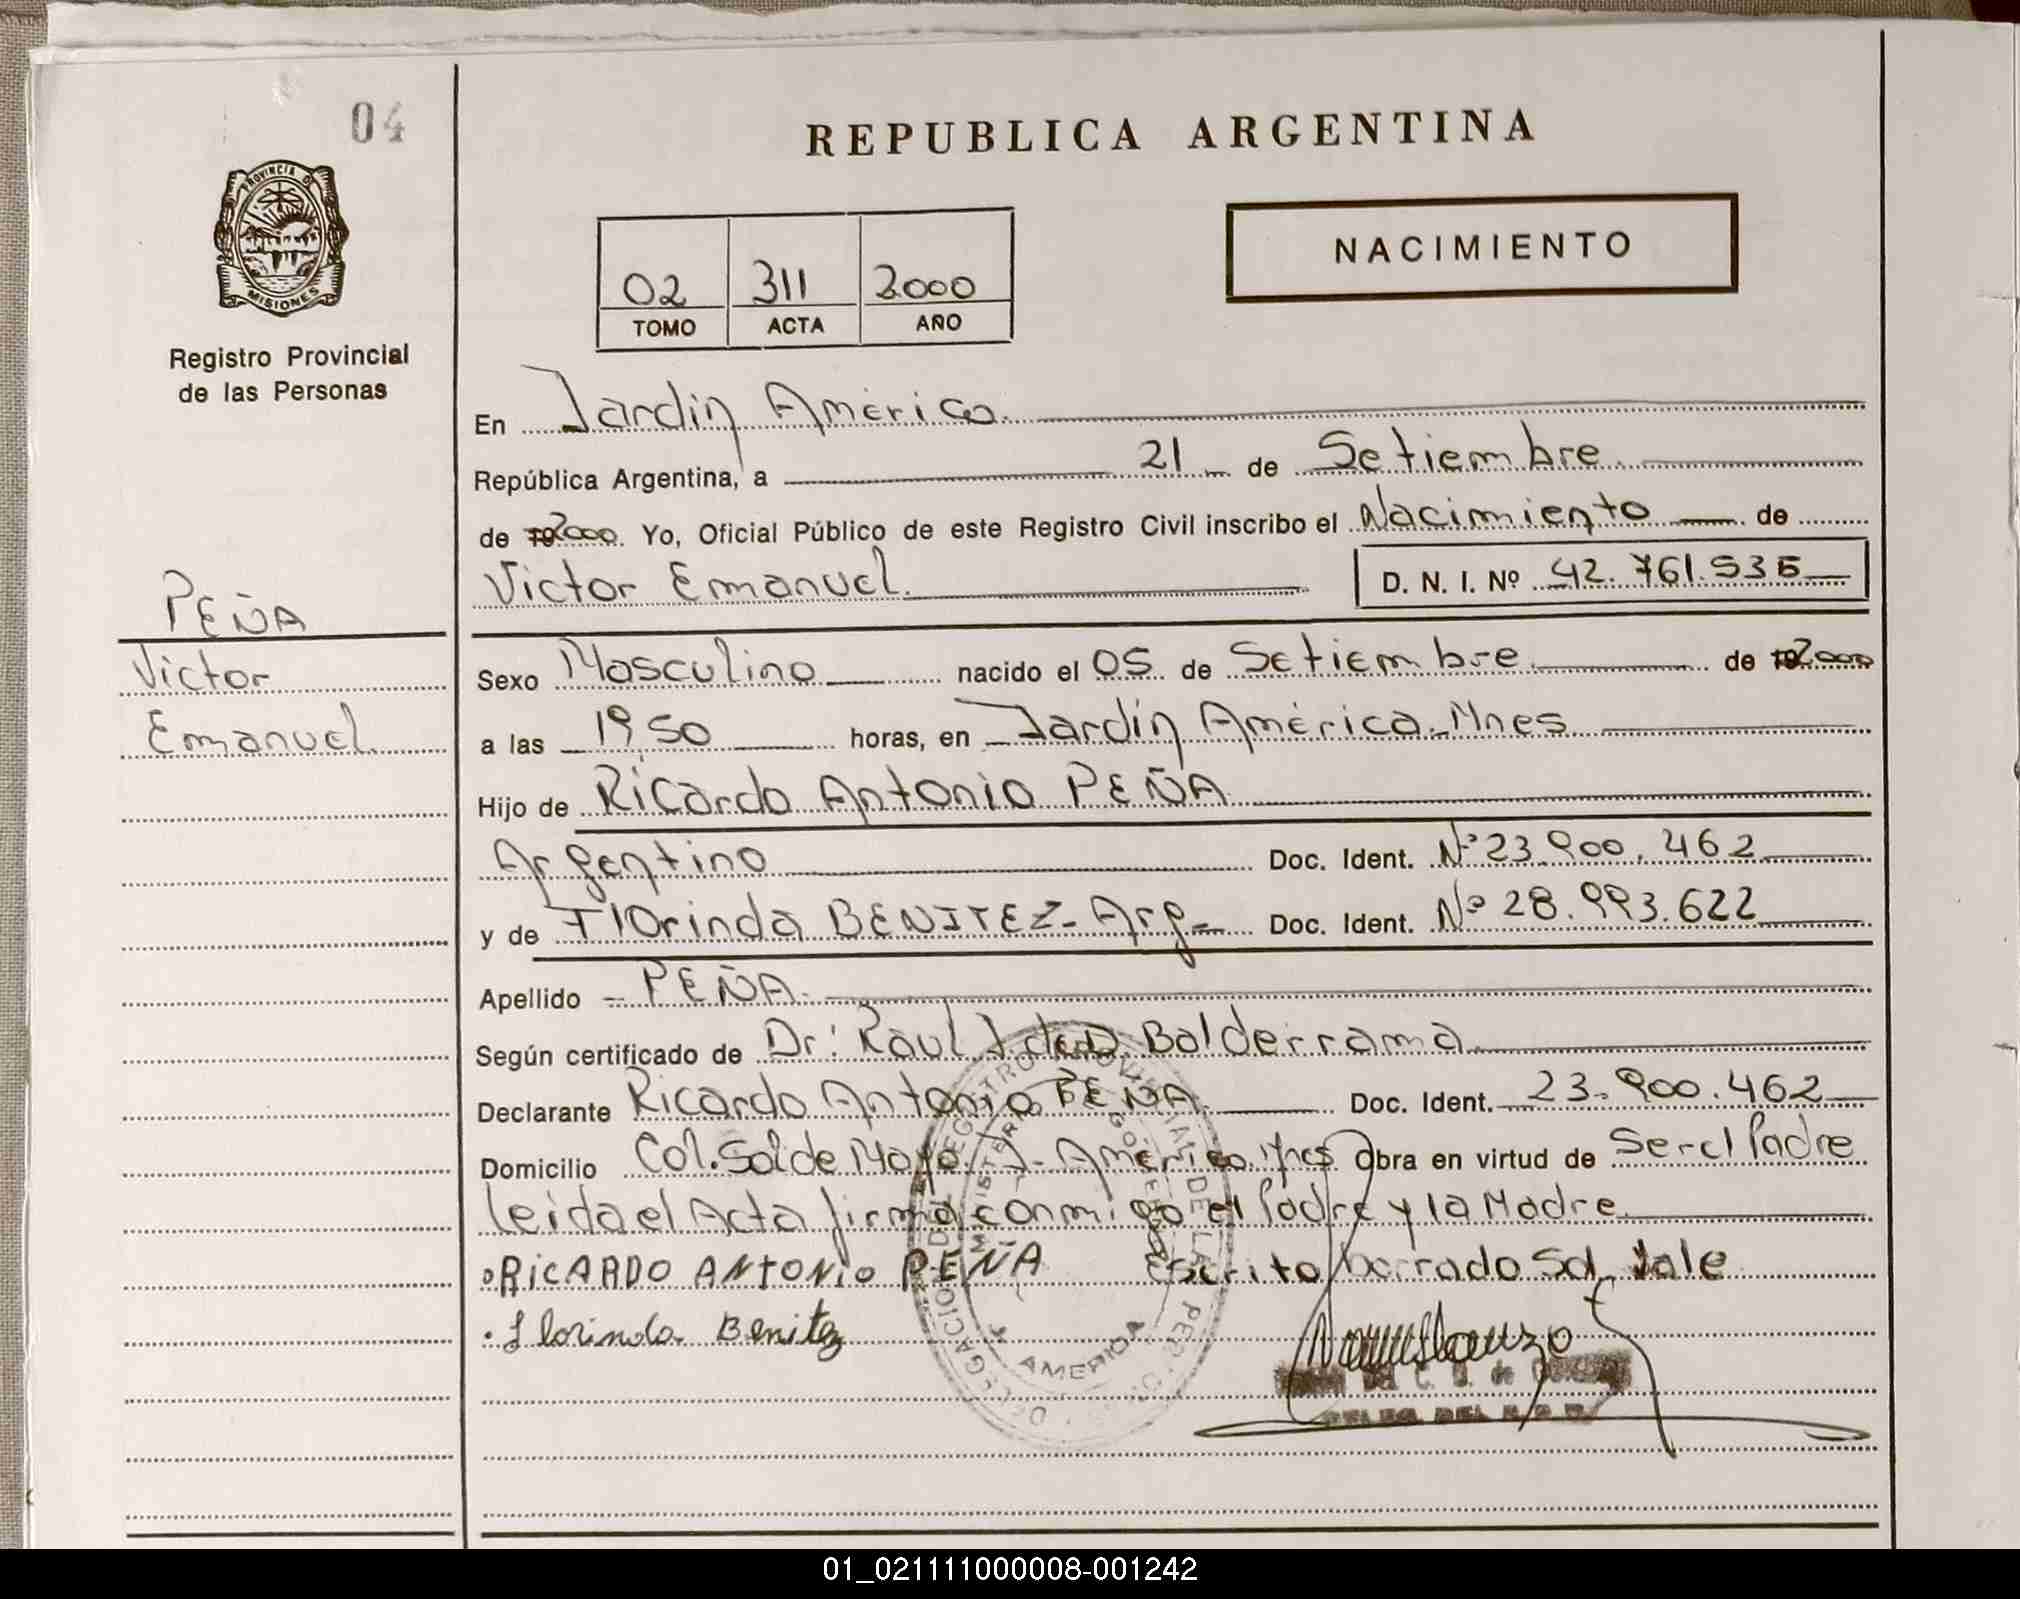 04
PROVINCIA DE
MISIONES
Registro Provincial
de las Personas
PEÑA
Victor
Emanuel
REPUBLICA ARGENTINA
02 311 2000
TOMO ACTA AÑO
NACIMIENTO
En Jardín América
República Argentina, a 21 de Setiembre
de 2000 Yo, Oficial Público de este Registro Civil inscribo el Nacimiento de
Victor Emanuel D. N. I. Nº 42.761.535
Sexo Masculino nacido el 05 de Setiembre de 2000
a las 19,50 horas, en Jardín América-Mnes
Hijo de Ricardo Antonio PEÑA
Argentino Doc. Ident. Nº 23.900.462
y de Florinda BENITEZ- Arg- Doc. Ident. Nº 28.993.622
Apellido - PEÑA
Según certificado de Dr: Raul Balderrama
Declarante Ricardo Antonio PEÑA Doc. Ident. 23.900.462
Domicilio Col. Sol de Mayo J. América. Mnes Obra en virtud de Ser el Padre
leida el Acta firma conmigo el Padre y la Madre
RICARDO ANTONIO PEÑA Escrito borrado Sd Vale
Florinda Benitez
AMERICA
01_021111000008-001242